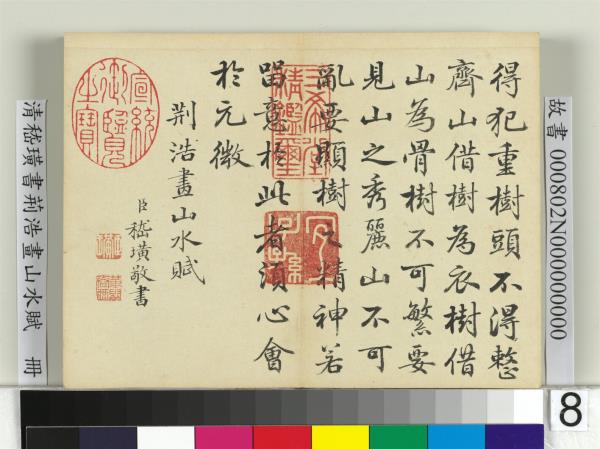 得犯重樹頭不得整
齊山借樹為衣樹借
山為骨樹不可繁要
見山之秀麗山不可
亂要顯樹之精神若
留意於此者須心會
於元微
荆浩畫山水賦
臣嵇璜敬書
宣統御覽之寶
三希堂精鑑璽
宜子孫
清嵇璜書荊浩畫山水賦 冊
故書 000802N000000000
8